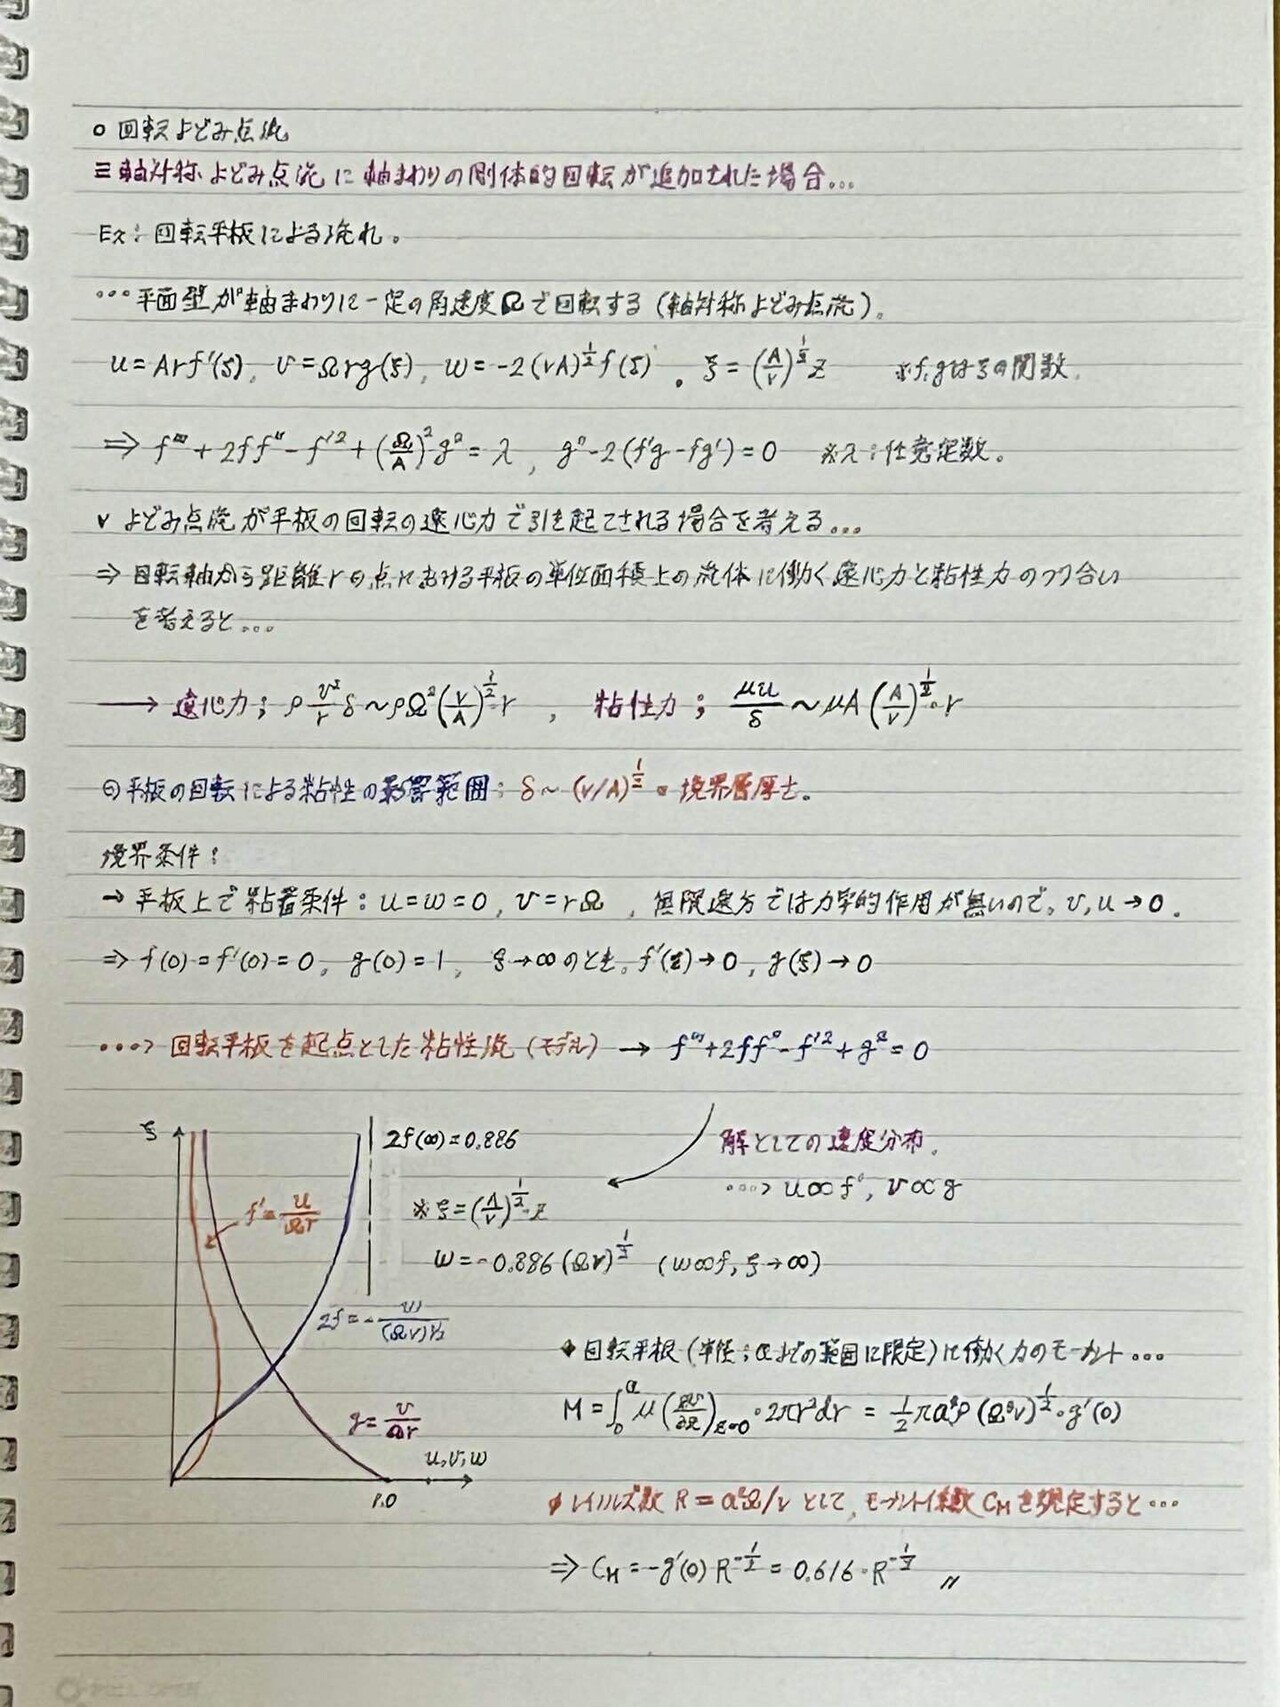 ○ 回転よどみ点流
≡ 軸対称よどみ点流に軸まわりの剛体的回転が追加された場合...
Ex: 回転平板による流れ。
...平面壁が軸まわりに一定の角速度Ωで回転する(軸対称よどみ点流)。
u=Arf'(ξ), v=Ωrg(ξ), w=-2(νA)^{1/2}f(ξ). ξ=(A/ν)^{1/2}z ※f,gはξの関数.
⇒ f'''+2ff''-f'^2+(Ω/A)^2g^2=λ, g''-2(f'g-fg')=0 ※λ:任意定数。
v よどみ点流が平板の回転の遠心力で引き起こされる場合を考える...
⇒ 回転軸から距離rの点における平板の単位面積上の流体に働く遠心力と粘性力のつり合い
を考えると...
→ 遠心力; ρ v^2/r δ~ρΩ^2(ν/A)^{1/2}・r , 粘性力; μu/δ~μA(A/ν)^{1/2}・r
平板の回転による粘性の影響範囲: δ~(ν/A)^{1/2} = 境界層厚さ。
境界条件:
→ 平板上で粘着条件: u=w=0, v=rΩ , 無限遠方では力学的作用が無いので, v,u→0.
⇒ f(0)=f'(0)=0, g(0)=1, ξ→∞のとき, f'(ξ)→0, g(ξ)→0
...> 回転平板を起点とした粘性流(モデル) → f'''+2ff''-f'^2+g^2=0
ξ
2f(∞)=0.886
解としての速度分布.
...> u∝f', v∝g
f'=u/Ωr
※ξ=(A/ν)^{1/2}・z
w=-0.886(Ων)^{1/2} (w∝f, ξ→∞)
2f=-w/(Ων)^{1/2}
◆回転平板(半径;aまでの範囲に限定)に働く力のモーメント...
M=∫_0^a μ(∂v/∂z)_{z=0}・2πr^2dr = 1/2πa^4ρ(Ω^3ν)^{1/2}・g'(0)
g=v/Ωr
u,v,w
1.0
レイノルズ数 R=a^2Ω/ν として, モーメント係数 C_M を規定すると...
⇒ C_M=-g'(0)R^{-1/2}=0.616・R^{-1/2} 〃